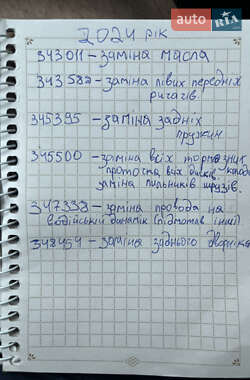 AUTO RIA
2024 рік
343 011 – заміна масла
343 582 – заміна лівих передніх
ричагів.
345395 – заміна задніх
пружин
345500 – заміна всіх тормазних
проточка всіх дисків,
заміна пильників шрузів.
347338 – заміна провода на
водійський динамік (підмотав інший)
348454 – заміна заднього дворніка